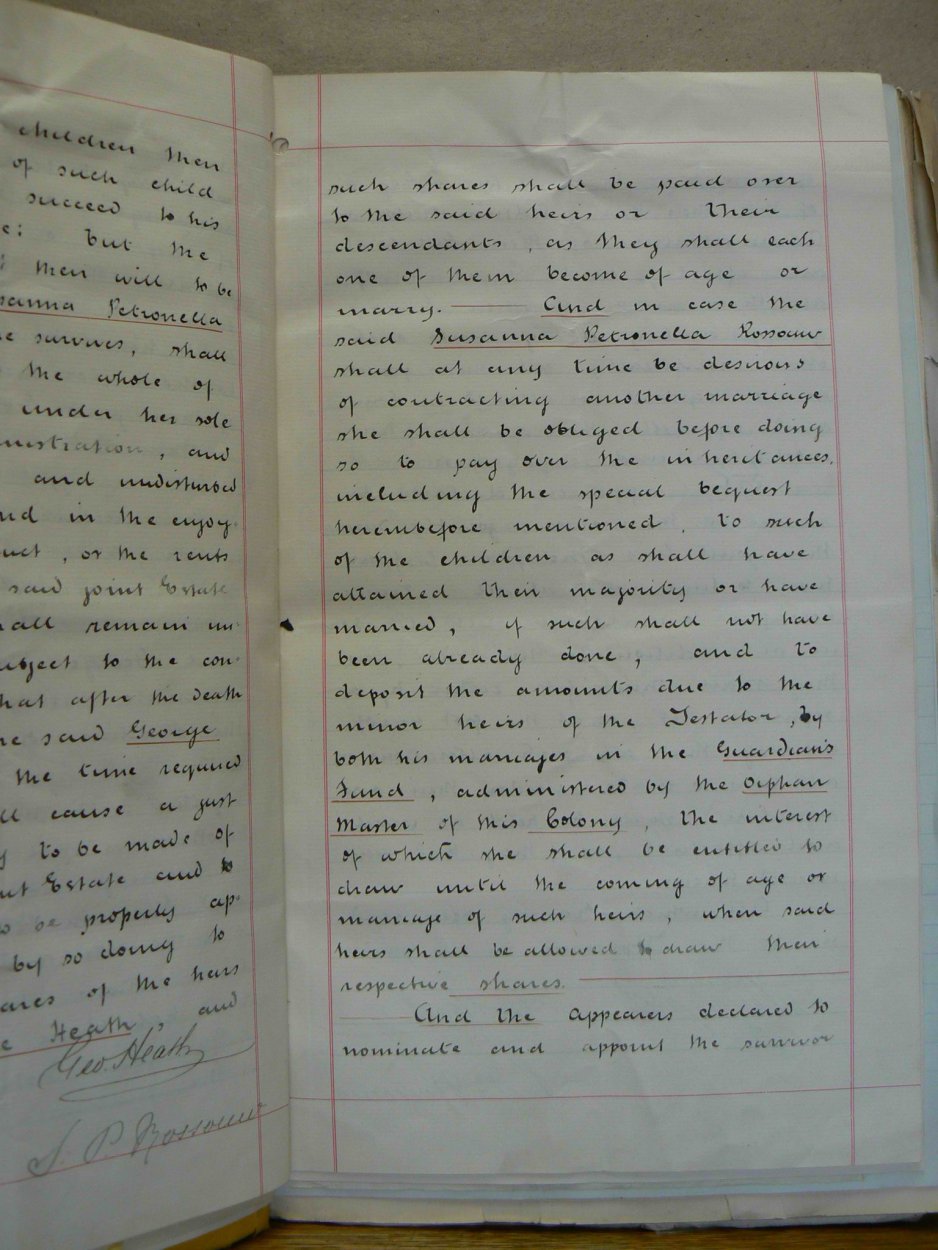 children then
of such child
succeed to his
but the
then will to be
Petronella
survives, shall
the whole of
under her sole
, and
and undisturbed
in the enjoy-
, or the rents
said joint Estate
remain un-
to the con-
after the death
said George
the time required
cause a just
to be made of
Estate and to
be properly ap-
by so doing to
of the heirs
Heath, and
Geo. Heath
S. P. Rossouw
such shares shall be paid over
to the said heirs or their
descendants, as they shall each
one of them become of age or
marry. — And in case the
said Susanna Petronella Rossouw
shall at any time be desirous
of contracting another marriage
she shall be obliged before doing
so to pay over the inheritances,
including the special bequest
hereinbefore mentioned, to such
of the children as shall have
attained their majority or have
married, if such shall not have
been already done, and to
deposit the amounts due to the
minor heirs of the Testator, by
both his marriages in the Guardian's
Fund, administered by the Orphan
Master of this Colony, the interest
of which she shall be entitled to
draw until the coming of age or
marriage of such heirs, when said
heirs shall be allowed to draw their
respective shares. —
— And the appearers declared to
nominate and appoint the survivor